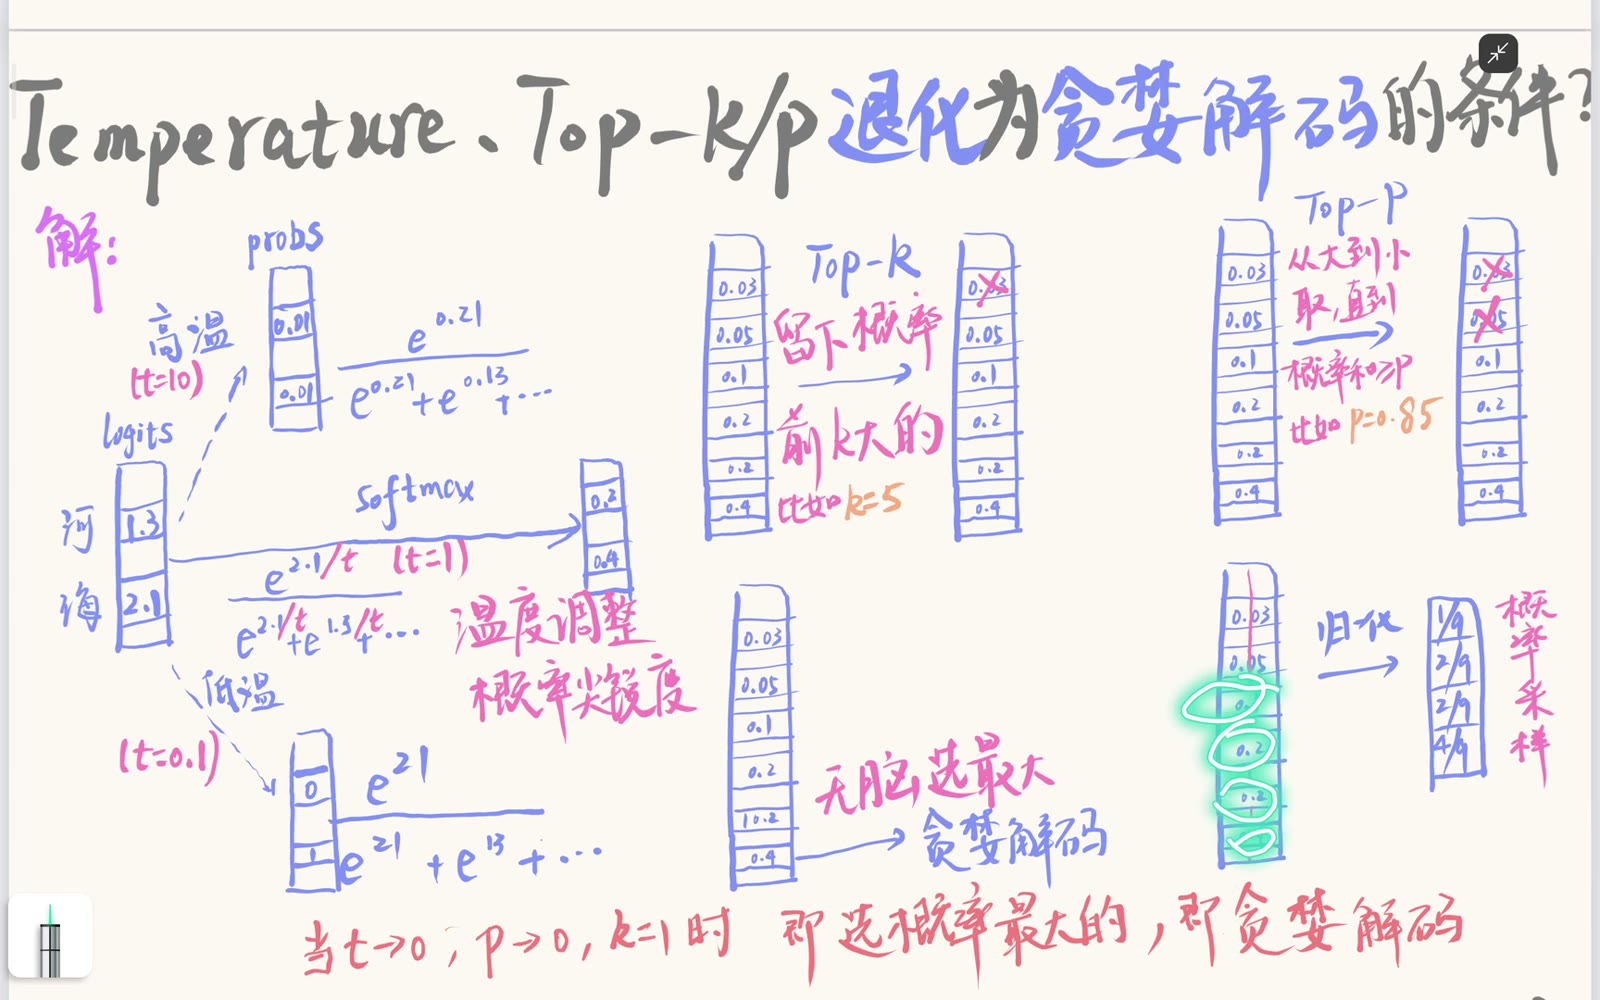 Temperature、Top-k/p退化为贪婪解码的条件?
解:
probs
高温
(t=10)
0.01
0.01
e^0.21
e^0.21+e^0.13+…
logits
河
海
1.3
2.1
softmax
(t=1)
e^2.1/t
e^2.1/t+e^1.3/t+…
0.2
0.4
温度调整
概率尖锐度
低温
(t=0.1)
0
1
e^21
e^21+e^13+…
0.03
0.05
0.1
0.2
0.2
0.4
Top-k
留下概率
前k大的
比如k=5
0.03
0.05
0.1
0.2
0.2
0.4
0.03
0.05
0.1
0.2
0.2
0.4
无脑选最大
贪婪解码
0.03
0.05
0.1
0.2
0.2
0.4
Top-P
从大到小
取,直到
概率和≥P
比如P=0.85
0.03
0.05
0.1
0.2
0.2
0.4
0.03
0.05
0.2
0.2
归一化
1/9
2/9
2/9
4/9
概率采样
当t→0,p→0,k=1时 即选概率最大的,即贪婪解码